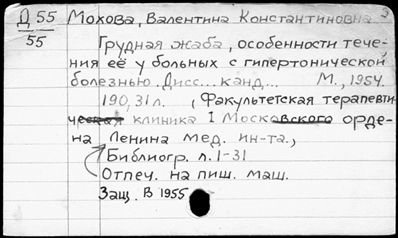 Д 55 Мохова, Валентина Константиновна
55
Грудная жаба, особенности тече-
ния её у больных с гипертонической
болезнью. Дисс... канд... М., 1954.
190, 31 л. , (Факультетская терапевти-
ческая клиника I Московского орде-
на Ленина мед. ин-та.,
Библиогр. л. 1-31
Отпеч. на пиш. маш.
Защ. В 1955